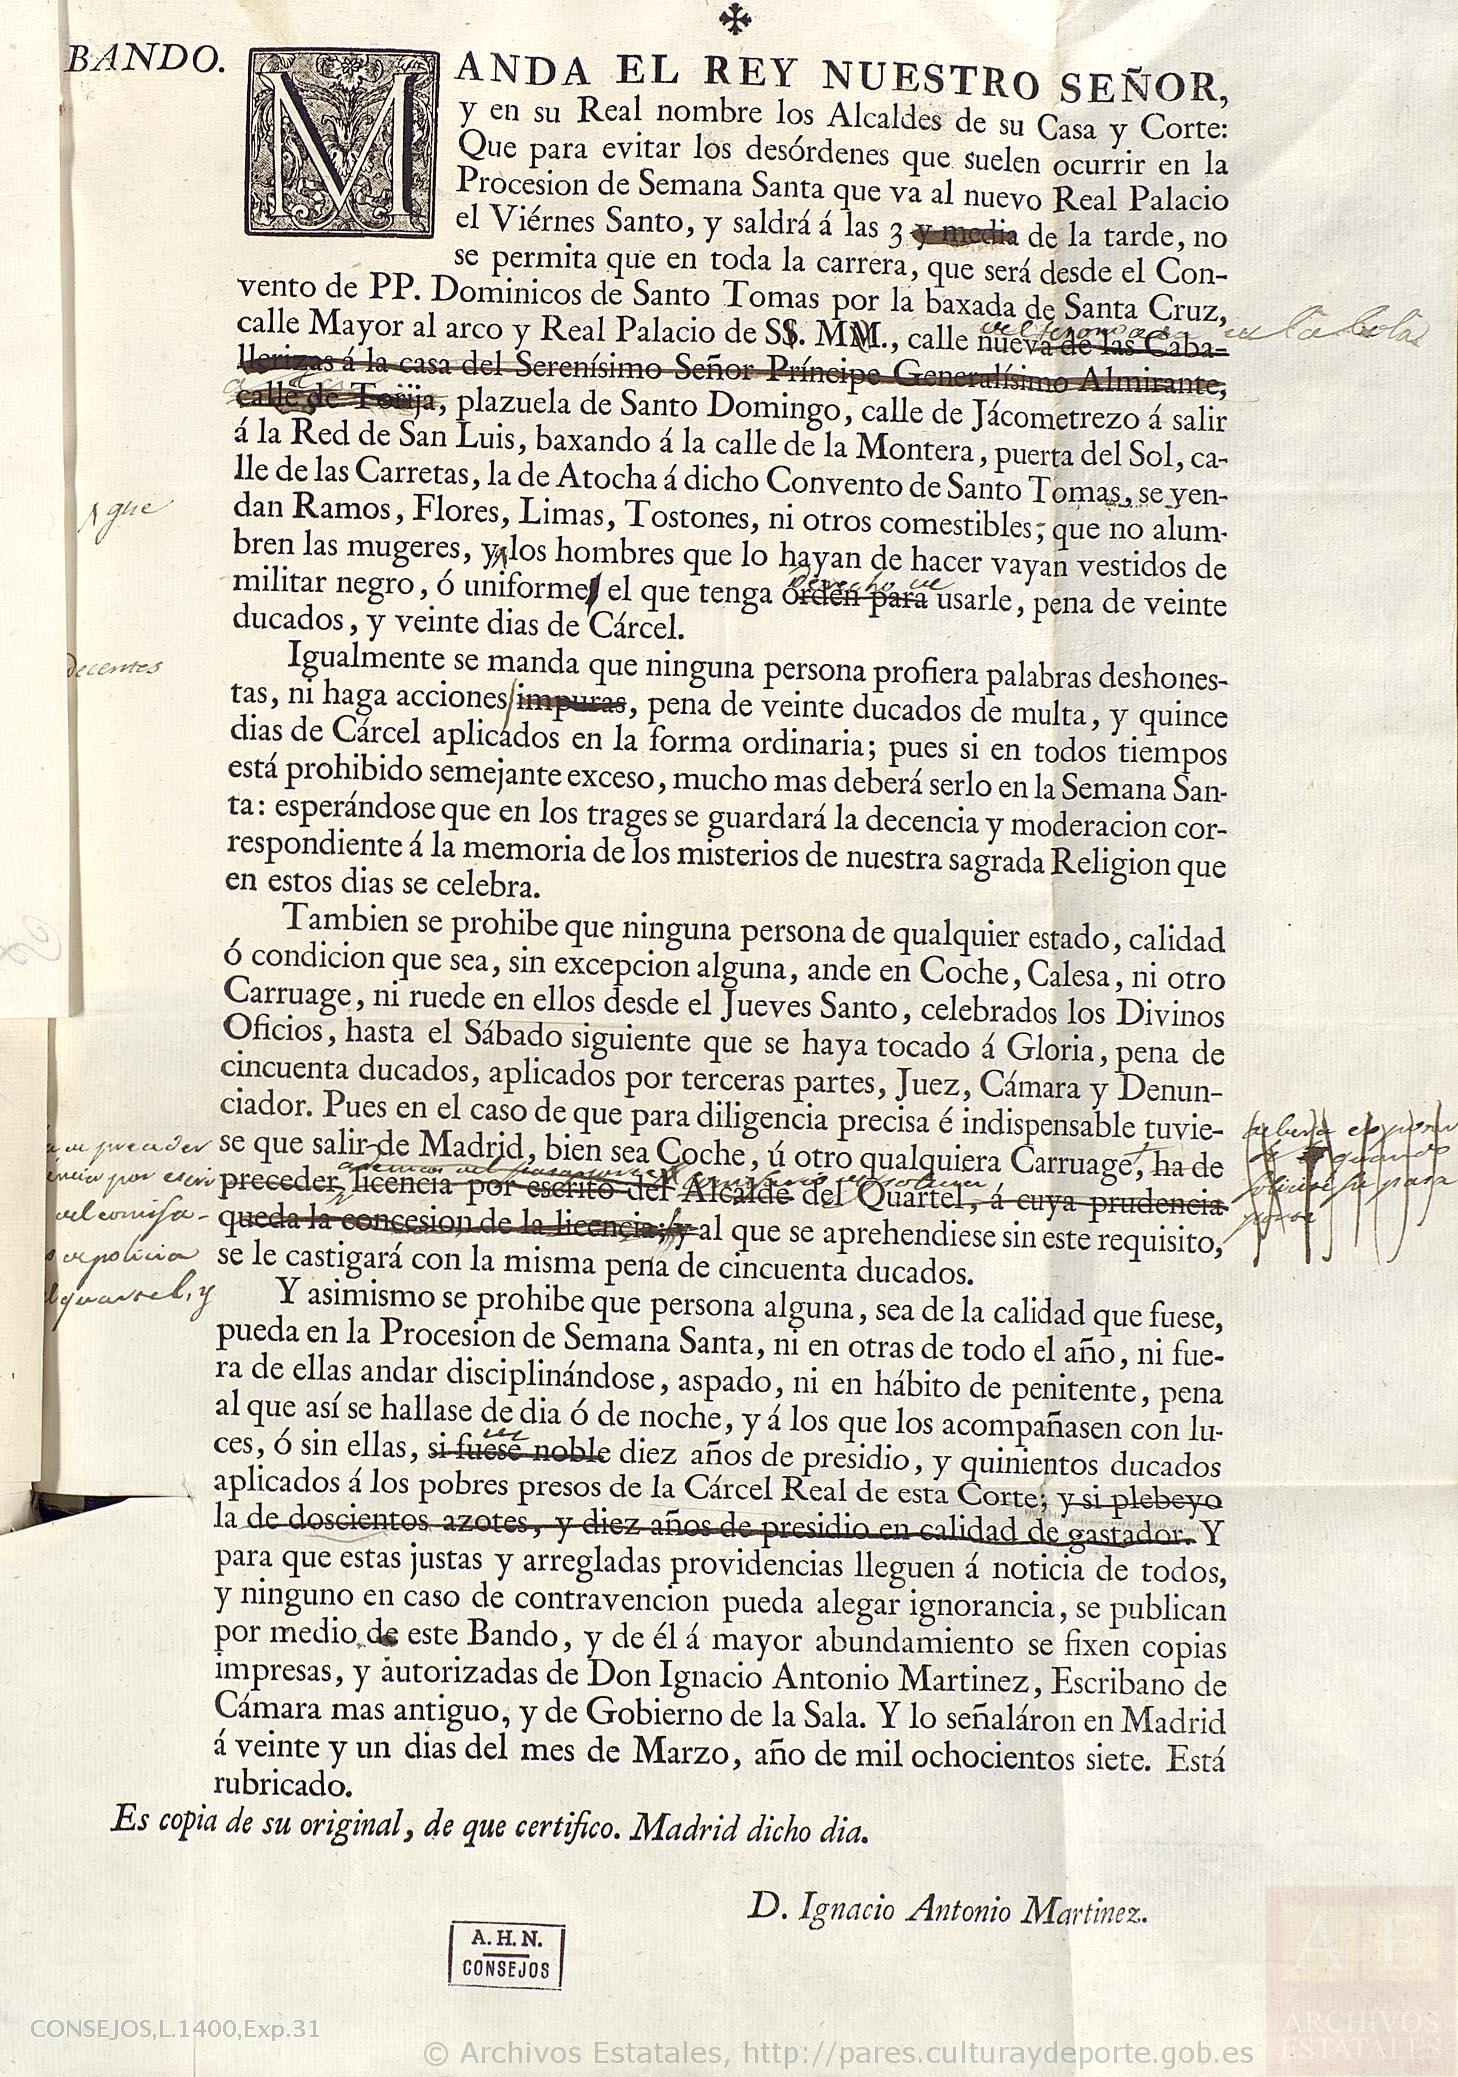 BANDO.
MANDA EL REY NUESTRO SEÑOR,
y en su Real nombre los Alcaldes de su Casa y Corte:
Que para evitar los desórdenes que suelen ocurrir en la
Procesion de Semana Santa que va al nuevo Real Palacio
el Viérnes Santo, y saldrá á las 3 y media de la tarde, no
se permita que en toda la carrera, que será desde el Con-
vento de PP. Dominicos de Santo Tomas por la baxada de Santa Cruz,
calle Mayor al arco y Real Palacio de SS. MM., calle nueva de las Caba-
llerizas á la casa del Serenísimo Señor Príncipe Generalísimo Almirante,
calle de Torija, plazuela de Santo Domingo, calle de Jácometrezo á salir
á la Red de San Luis, baxando á la calle de la Montera, puerta del Sol, ca-
lle de las Carretas, la de Atocha á dicho Convento de Santo Tomas, se ven-
dan Ramos, Flores, Limas, Tostones, ni otros comestibles; que no alum-
que
bren las mugeres, y los hombres que lo hayan de hacer vayan vestidos de
derecho de
militar negro, ó uniforme el que tenga orden para usarle, pena de veinte
ducados, y veinte dias de Cárcel.
Igualmente se manda que ninguna persona profiera palabras deshones-
decentes
tas, ni haga acciones impuras, pena de veinte ducados de multa, y quince
dias de Cárcel aplicados en la forma ordinaria; pues si en todos tiempos
está prohibido semejante exceso, mucho mas deberá serlo en la Semana San-
ta: esperándose que en los trages se guardará la decencia y moderacion cor-
respondiente á la memoria de los misterios de nuestra sagrada Religion que
en estos dias se celebra.
Tambien se prohibe que ninguna persona de qualquier estado, calidad
ó condicion que sea, sin excepcion alguna, ande en Coche, Calesa, ni otro
Carruage, ni ruede en ellos desde el Jueves Santo, celebrados los Divinos
Oficios, hasta el Sábado siguiente que se haya tocado á Gloria, pena de
cincuenta ducados, aplicados por terceras partes, Juez, Cámara y Denun-
ciador. Pues en el caso de que para diligencia precisa é indispensable tuvie-
se que salir de Madrid, bien sea Coche, ú otro qualquiera Carruage, ha de
preceder licencia por escrito del Alcalde del Quartel, á cuya prudencia
queda la concesion de la licencia; y al que se aprehendiese sin este requisito,
de preceder
por escri
del comisa-
de policia
quartel, y
se le castigará con la misma pena de cincuenta ducados.
Y asimismo se prohibe que persona alguna, sea de la calidad que fuese,
pueda en la Procesion de Semana Santa, ni en otras de todo el año, ni fue-
ra de ellas andar disciplinándose, aspado, ni en hábito de penitente, pena
al que así se hallase de dia ó de noche, y á los que los acompañasen con lu-
ces, ó sin ellas, si fuese noble diez años de presidio, y quinientos ducados
aplicados á los pobres presos de la Cárcel Real de esta Corte; y si plebeyo
la de doscientos azotes, y diez años de presidio en calidad de gastador. Y
para que estas justas y arregladas providencias lleguen á noticia de todos,
y ninguno en caso de contravencion pueda alegar ignorancia, se publican
por medio de este Bando, y de él á mayor abundamiento se fixen copias
impresas, y autorizadas de Don Ignacio Antonio Martinez, Escribano de
Cámara mas antiguo, y de Gobierno de la Sala. Y lo señaláron en Madrid
á veinte y un dias del mes de Marzo, año de mil ochocientos siete. Está
rubricado.
Es copia de su original, de que certifico. Madrid dicho dia.
D. Ignacio Antonio Martinez.
A. H. N.
CONSEJOS
CONSEJOS,L.1400,Exp.31
© Archivos Estatales, http://pares.culturaydeporte.gob.es
AE
ARCHIVOS
ESTATALES